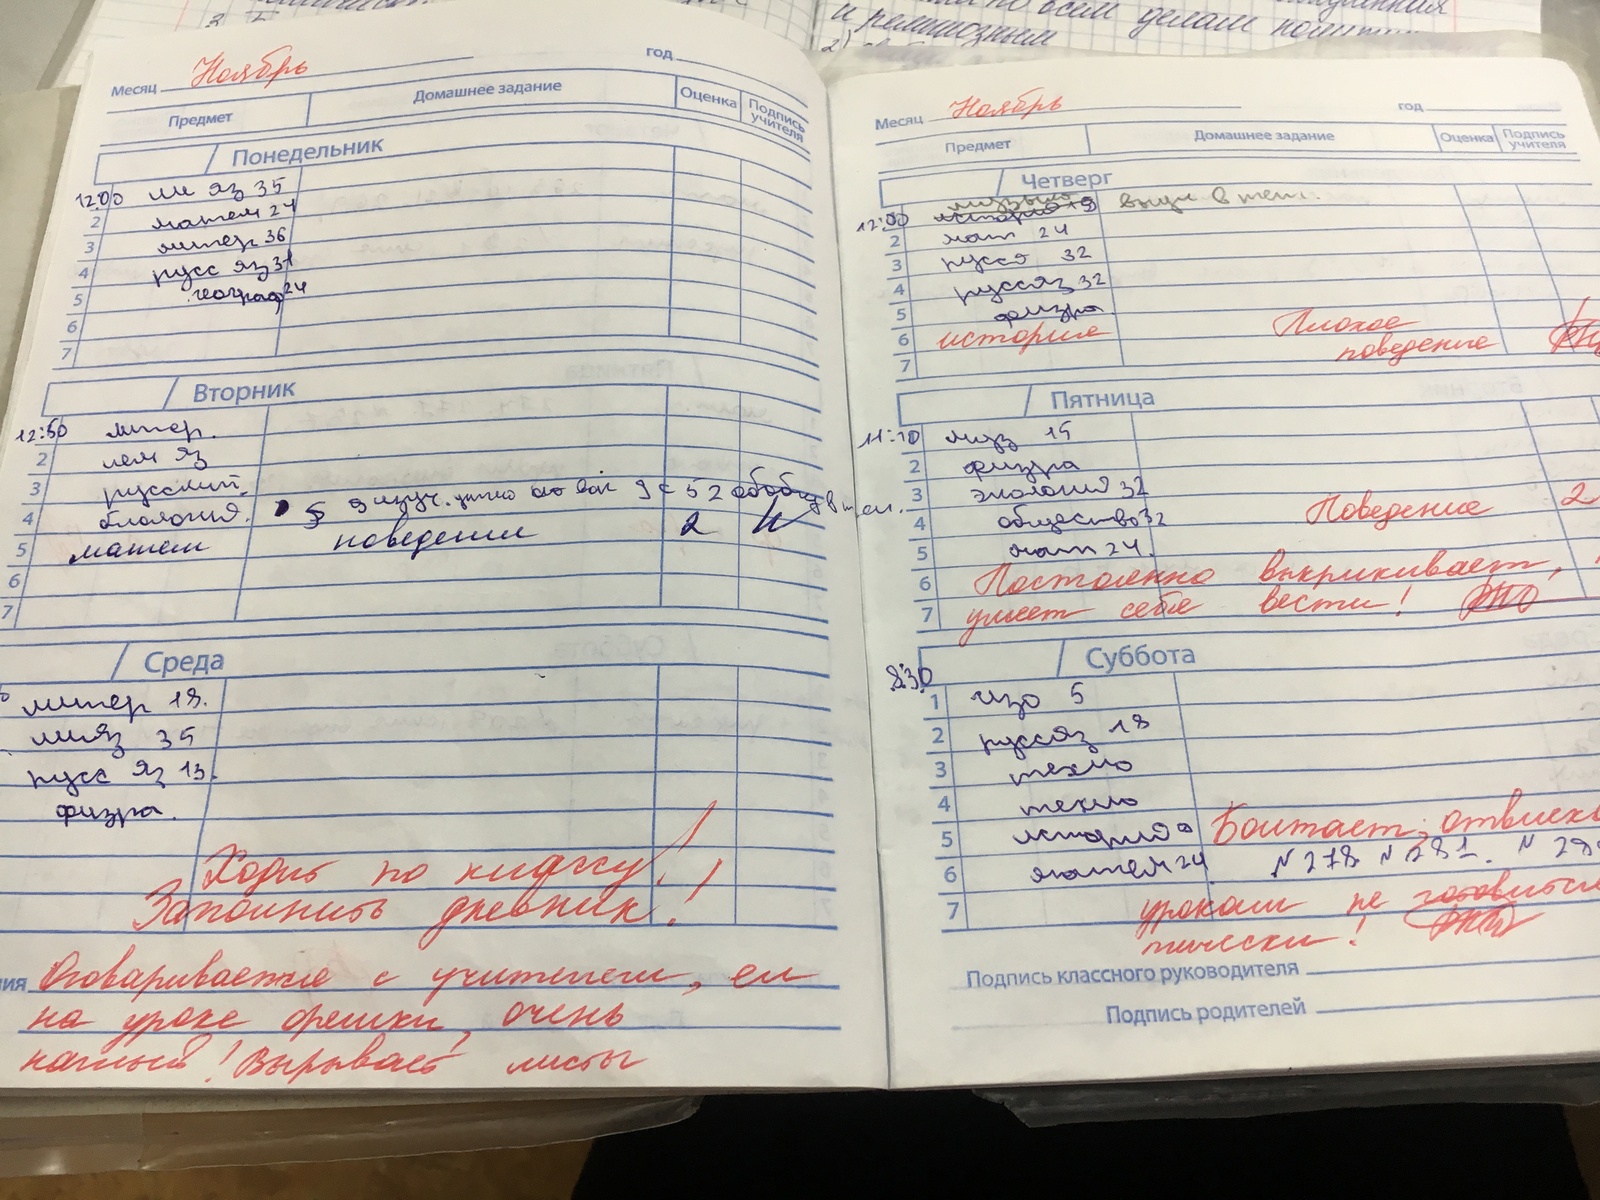 и религиозным
2)
Месяц Ноябрь год
Предмет Домашнее задание Оценка Подпись учителя
Понедельник
12:00 ли яз 35
2 матем 24
3 литер 36
4 русс яз 31
5 географ 24
6
7
Вторник
12:50 литер.
2 нем яз
3 русский
4 биология. § 9 изуч. 9 с 52
5 матем поведение 2
6
7
Среда
литер 18.
яз 35
русс яз 13.
физра.
Ходит по классу!
Заполнить дневник!
ния Оговаривается с учителем, ел
на уроке орешки, очень
наглый! Вырывает листы
Месяц Ноябрь год
Предмет Домашнее задание Оценка Подпись учителя
Четверг
12:00 музыка история 19 в тет.
2 мат 24
3 русся 32
4 руссяз 32
5 физра.
6 история Плохое
7 поведение
Пятница
11:10 муз 15
2 физра
3 экология 32
4 общество 32 Поведение 2
5 мат 24.
6 Постоянно выкрикивает,
7 умеет себя вести!
Суббота
8:30
1 изо 5
2 руссяз 18
3 техно
4 техно
5 история Болтает,
6 матем 24 N 278 N 281. N
7 урокам не
тически!
Подпись классного руководителя
Подпись родителей